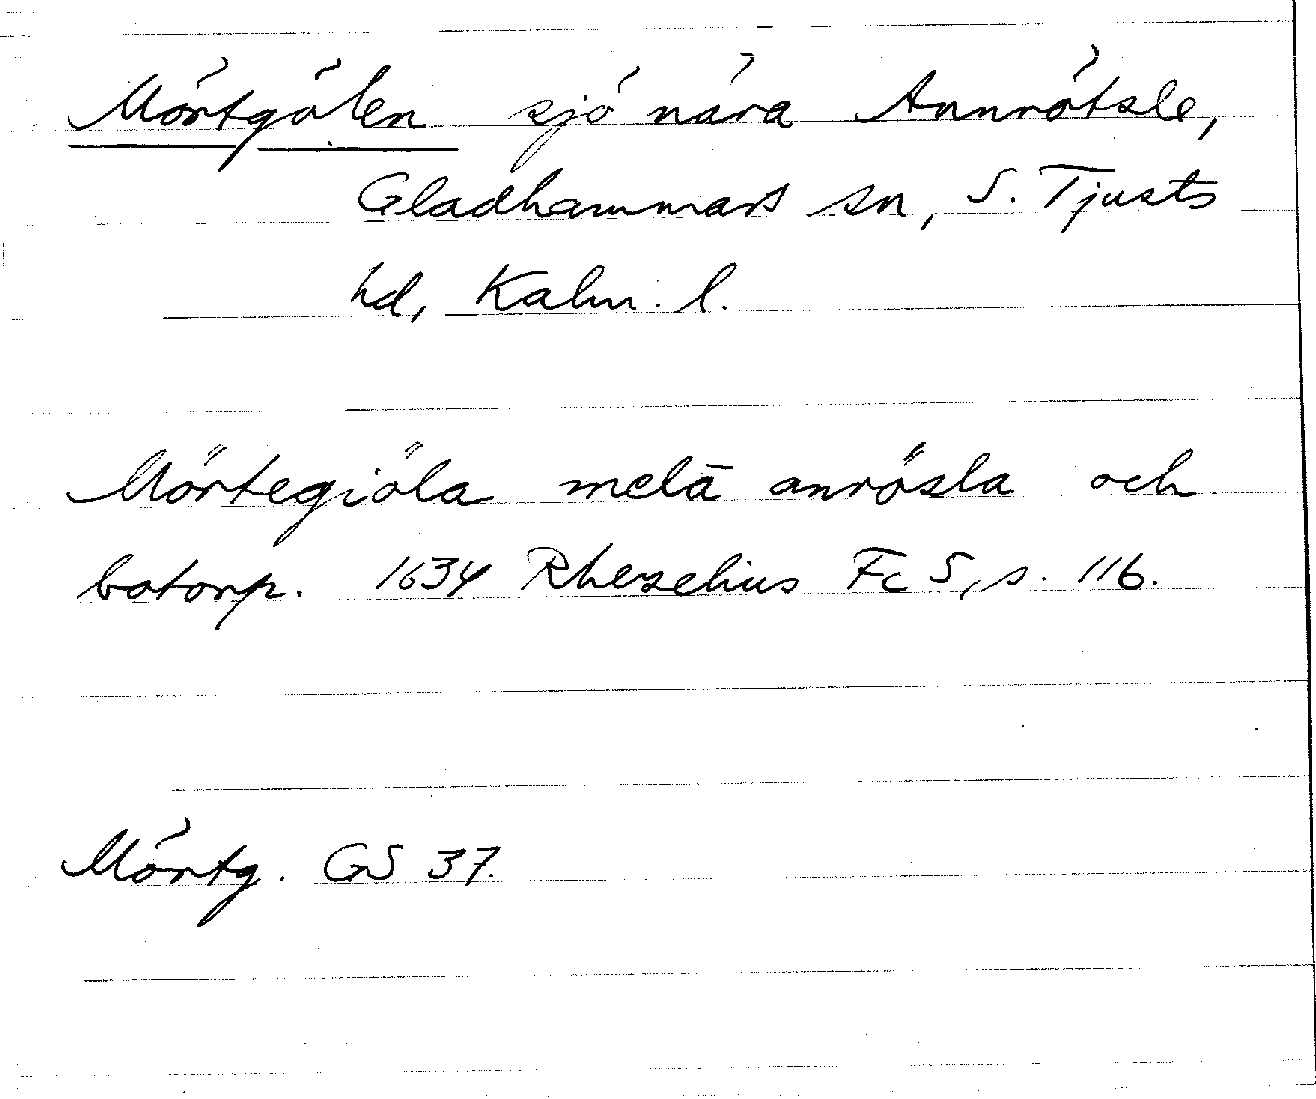 Mörtgölen sjö nära Annrötsle,
Gladhammars sn, S. Tjusts
hd, Kalm. l.
Mörtegiöla melā anrösla och
botorp. 1634 Rhezelius Fc 5, s. 116.
Mörtg. GS 37.